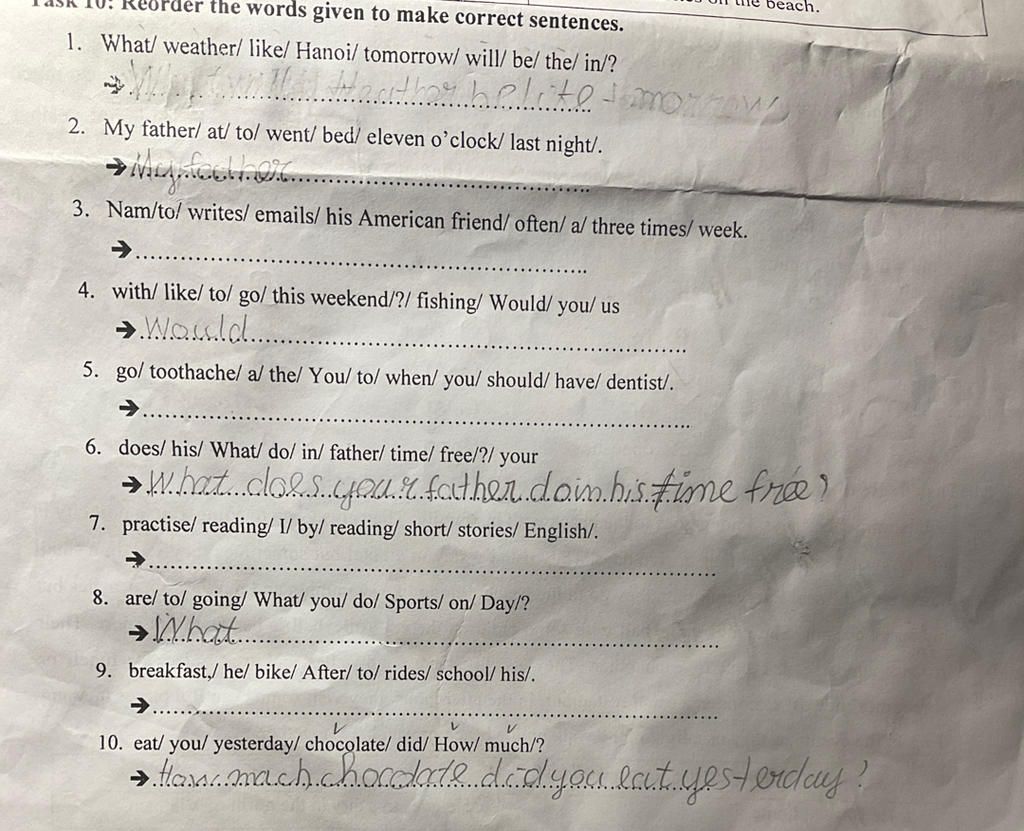 on the beach.
Task 10: Reorder the words given to make correct sentences.
1. What/ weather/ like/ Hanoi/ tomorrow/ will/ be/ the/ in/?
➔ What will Heather be like tomorrow
2. My father/ at/ to/ went/ bed/ eleven o'clock/ last night/.
➔ My father
3. Nam/to/ writes/ emails/ his American friend/ often/ a/ three times/ week.
➔
4. with/ like/ to/ go/ this weekend/?/ fishing/ Would/ you/ us
➔ Would
5. go/ toothache/ a/ the/ You/ to/ when/ you/ should/ have/ dentist/.
➔
6. does/ his/ What/ do/ in/ father/ time/ free/?/ your
➔ What does your father do in his time free?
7. practise/ reading/ I/ by/ reading/ short/ stories/ English/.
➔
8. are/ to/ going/ What/ you/ do/ Sports/ on/ Day/?
➔ What
9. breakfast,/ he/ bike/ After/ to/ rides/ school/ his/.
➔
10. eat/ you/ yesterday/ chocolate/ did/ How/ much/?
➔ How mach chocolate did you eat yesterday?